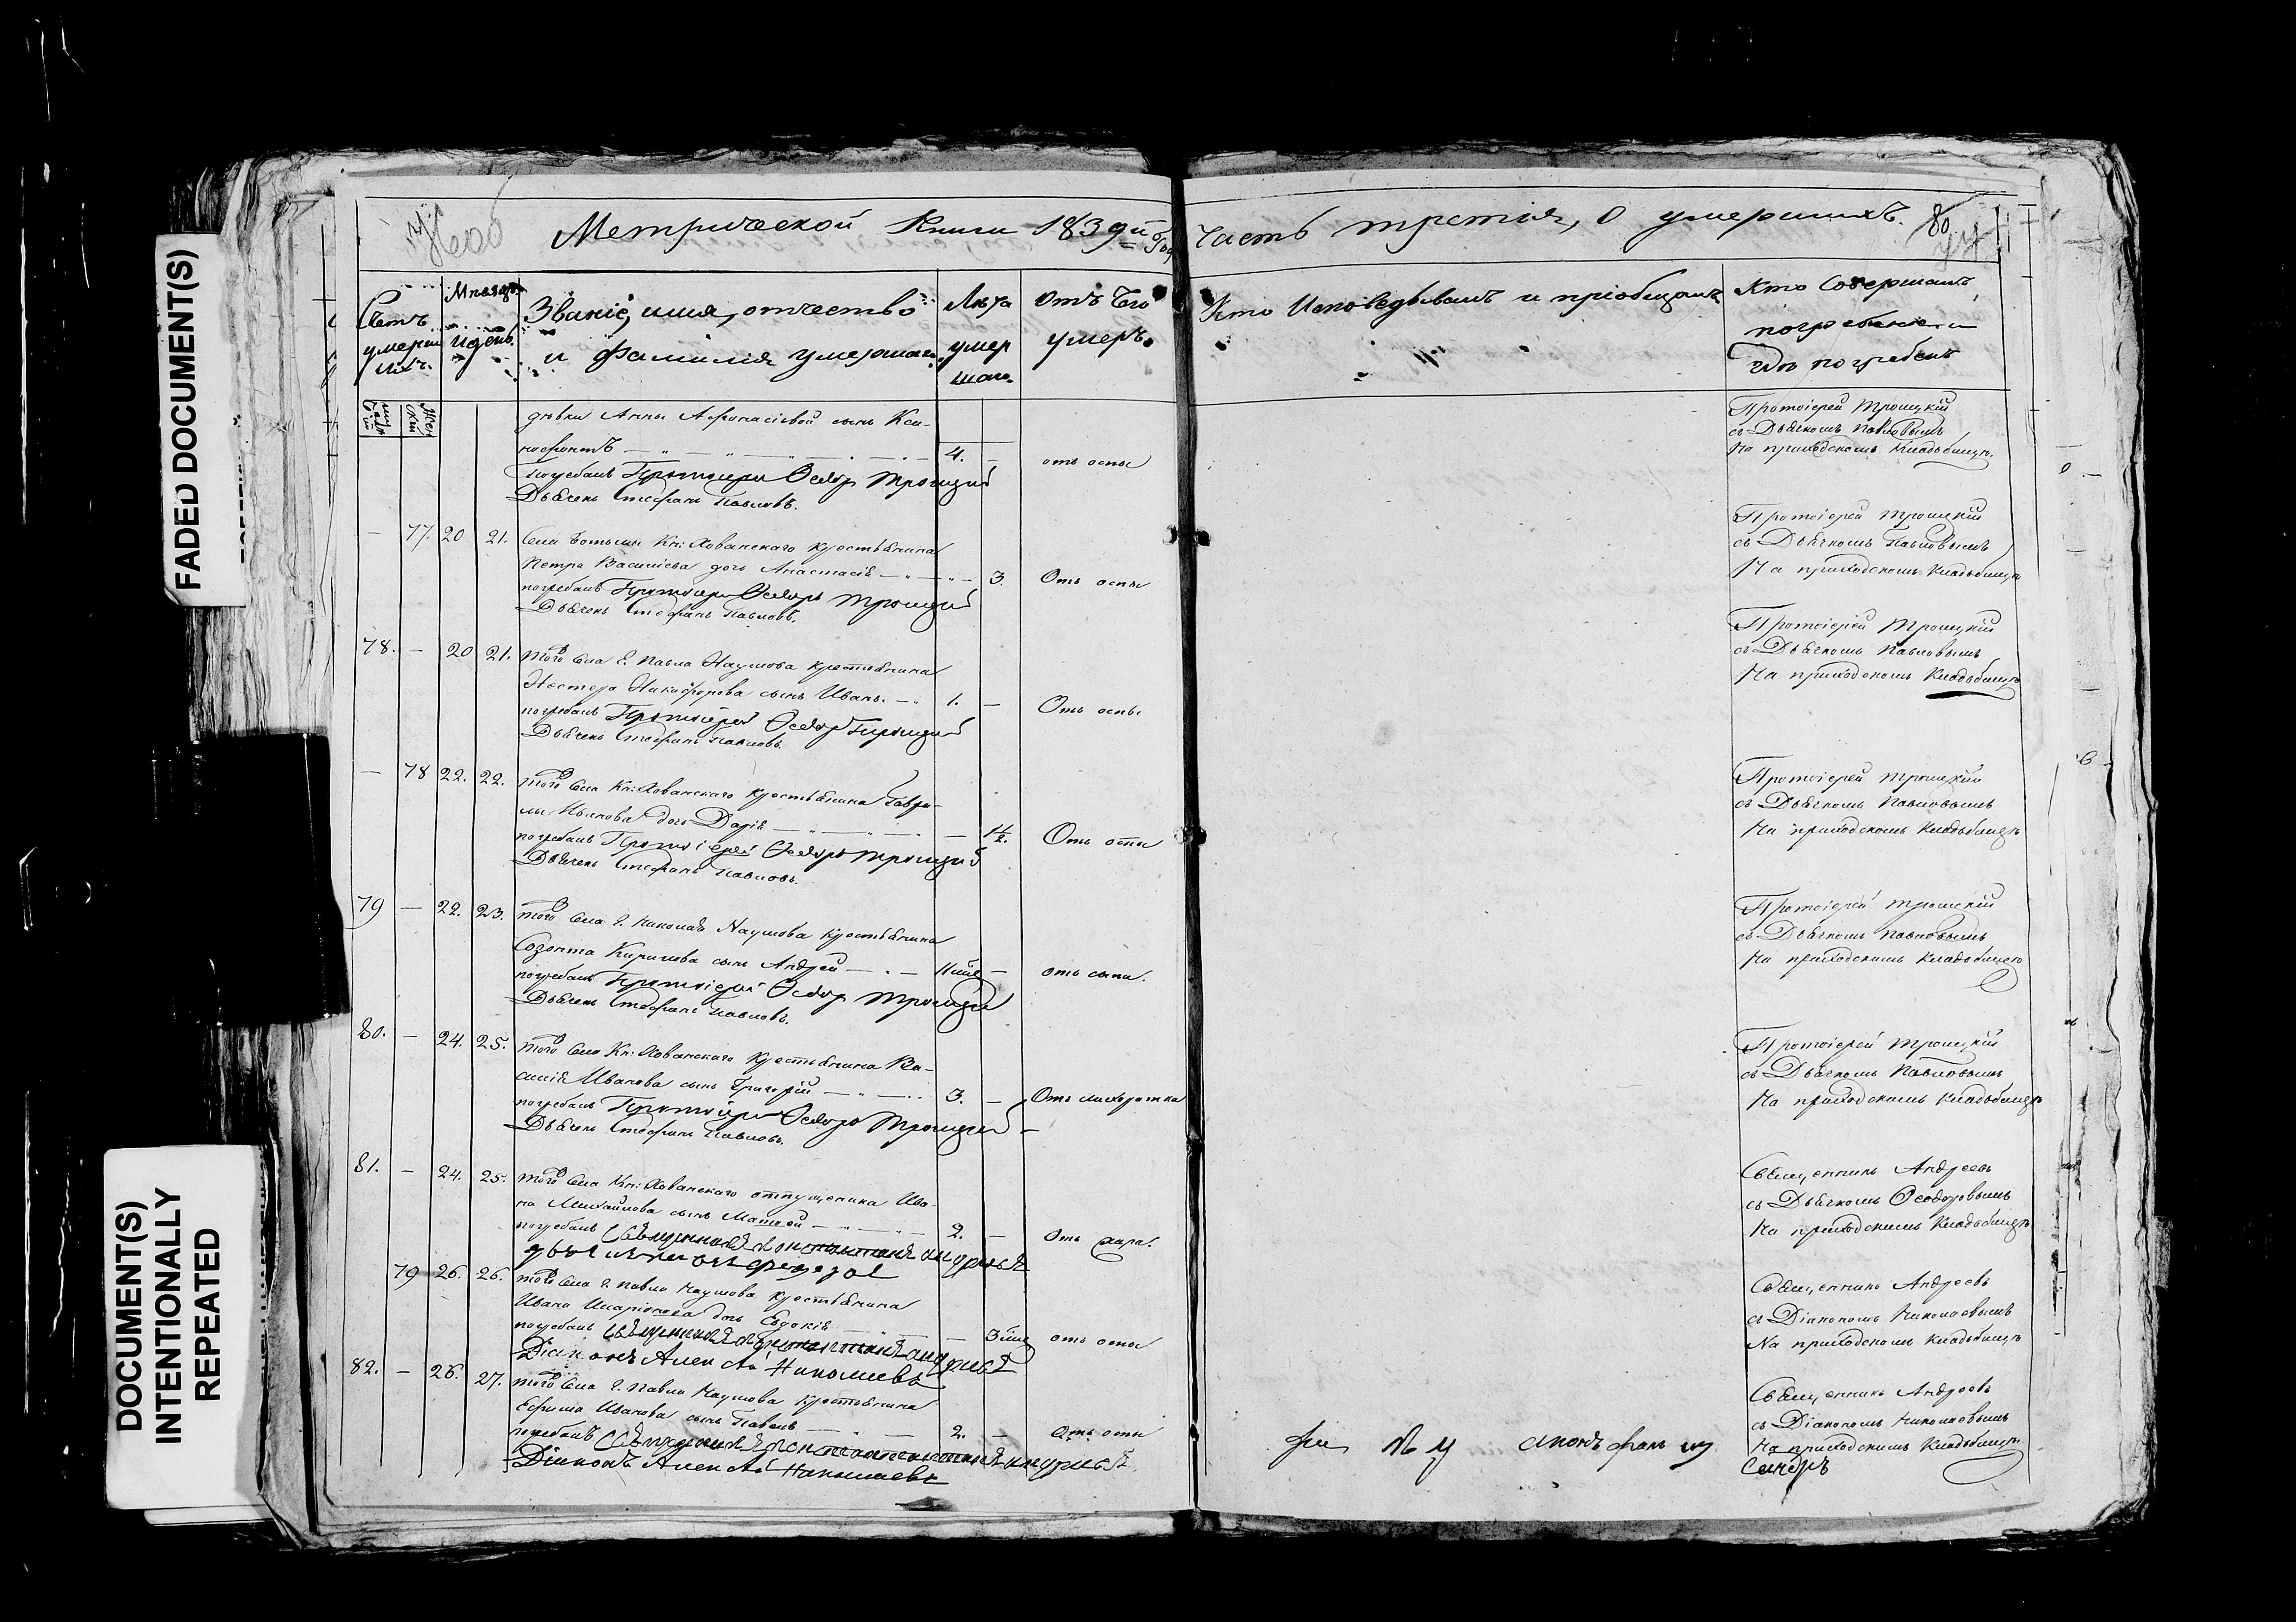 FADED DOCUMENT(S)
DOCUMENT(S)
INTENTIONALLY
REPEATED
Метрической Книги 1839й Года
часть третія, о умершихъ.
80
Счетъ умершихъ.
Мѣсяцъ и день.
Званіе, имя, отчество
и фамилія умершаго.
Лѣта
умер
шаго.
Отъ чего
умеръ.
Кто Исповѣдывалъ и пріобщалъ
Кто Совершалъ
погребеніе и
гдѣ погребенъ
дѣвки Анны Афонасіевой сынъ Ксе-
нофонтъ 4. — отъ оспы
Погребалъ Протоіерей Ѳеодоръ Троицкій
Дьячекъ Стефанъ Павловъ.
Протоіерей Троицкій
съ Дьячкомъ Павловымъ
На приходскомъ Кладбищѣ.
— 77. 20 21. Села Ботьмы Кн: Хованскаго крестьянина
Петра Василіева дочь Анастасія — 3. Отъ оспы
погребалъ Протоіерей Ѳеодоръ Троицкій
Дьячекъ Стефанъ Павловъ.
Протоіерей Троицкій
съ Дьячкомъ Павловымъ
На приходскомъ Кладбищѣ
78. — 20 21. того Села Г. Павла Наумова крестьянина
Нестера Никифорова сынъ Иванъ. 1. — Отъ оспы
погребалъ Протоіерей Ѳеодоръ Троицкій
Дьячекъ Стефанъ Павловъ.
Протоіерей Троицкій
съ Дьячкомъ Павловымъ
На приходскомъ Кладбищѣ
— 78 22. 22. того Села Кн: Хованскаго крестьянина Гаври-
лы дочь Дарія — 1½. Отъ оспы
погребалъ Протоіерей Ѳеодоръ Троицкій
Дьячекъ Стефанъ Павловъ.
Протоіерей Троицкій
съ Дьячкомъ Павловымъ
На приходскомъ Кладбищѣ
79 — 22. 23. того Села Г. Николая Наумова крестьянина
Созонта Кирилова сынъ Андрей —
погребалъ Протоіерей Ѳеодоръ Троицкій
Дьячекъ Стефанъ Павловъ.
Протоіерей Троицкій
съ Дьячкомъ Павловымъ
На приходскомъ Кладбищѣ
80. — 24. 25. того Села Кн: Хованскаго крестьянина Ва-
силія Иванова сынъ Григорій 3. — Отъ лихоратки
погребалъ Протоіерей Ѳеодоръ Троицкій
Дьячекъ Стефанъ Павловъ.
Протоіерей Троицкій
съ Дьячкомъ Павловымъ
На приходскомъ Кладбищѣ
81. — 24. 25. того Села Кн: Хованскаго отпущеника Ива-
на Михайлова сынъ Матвей
погребалъ Священникъ Константинъ Андреевъ 2. — Отъ
Священникъ Андреевъ
съ Дьячкомъ Ѳеодоровымъ
На приходскомъ Кладбищѣ
79 26. 26. того Села Г. Павла Наумова крестьянина
Ивана Иларіонова дочь Евдокія
погребалъ Священникъ Константинъ Андреевъ — отъ оспы
Діаконъ Алексѣй Николаевъ
Священникъ Андреевъ
съ Діакономъ Николаевымъ
На приходскомъ Кладбищѣ
82. — 26. 27. того Села Г. Павла Наумова крестьянина
Ефима Иванова сынъ Павелъ 2. — Отъ оспы
погребалъ Священникъ Константинъ Андреевъ
Діаконъ Алексѣй Николаевъ
Священникъ Андреевъ
съ Діакономъ Николаевымъ
На приходскомъ Кладбищѣ